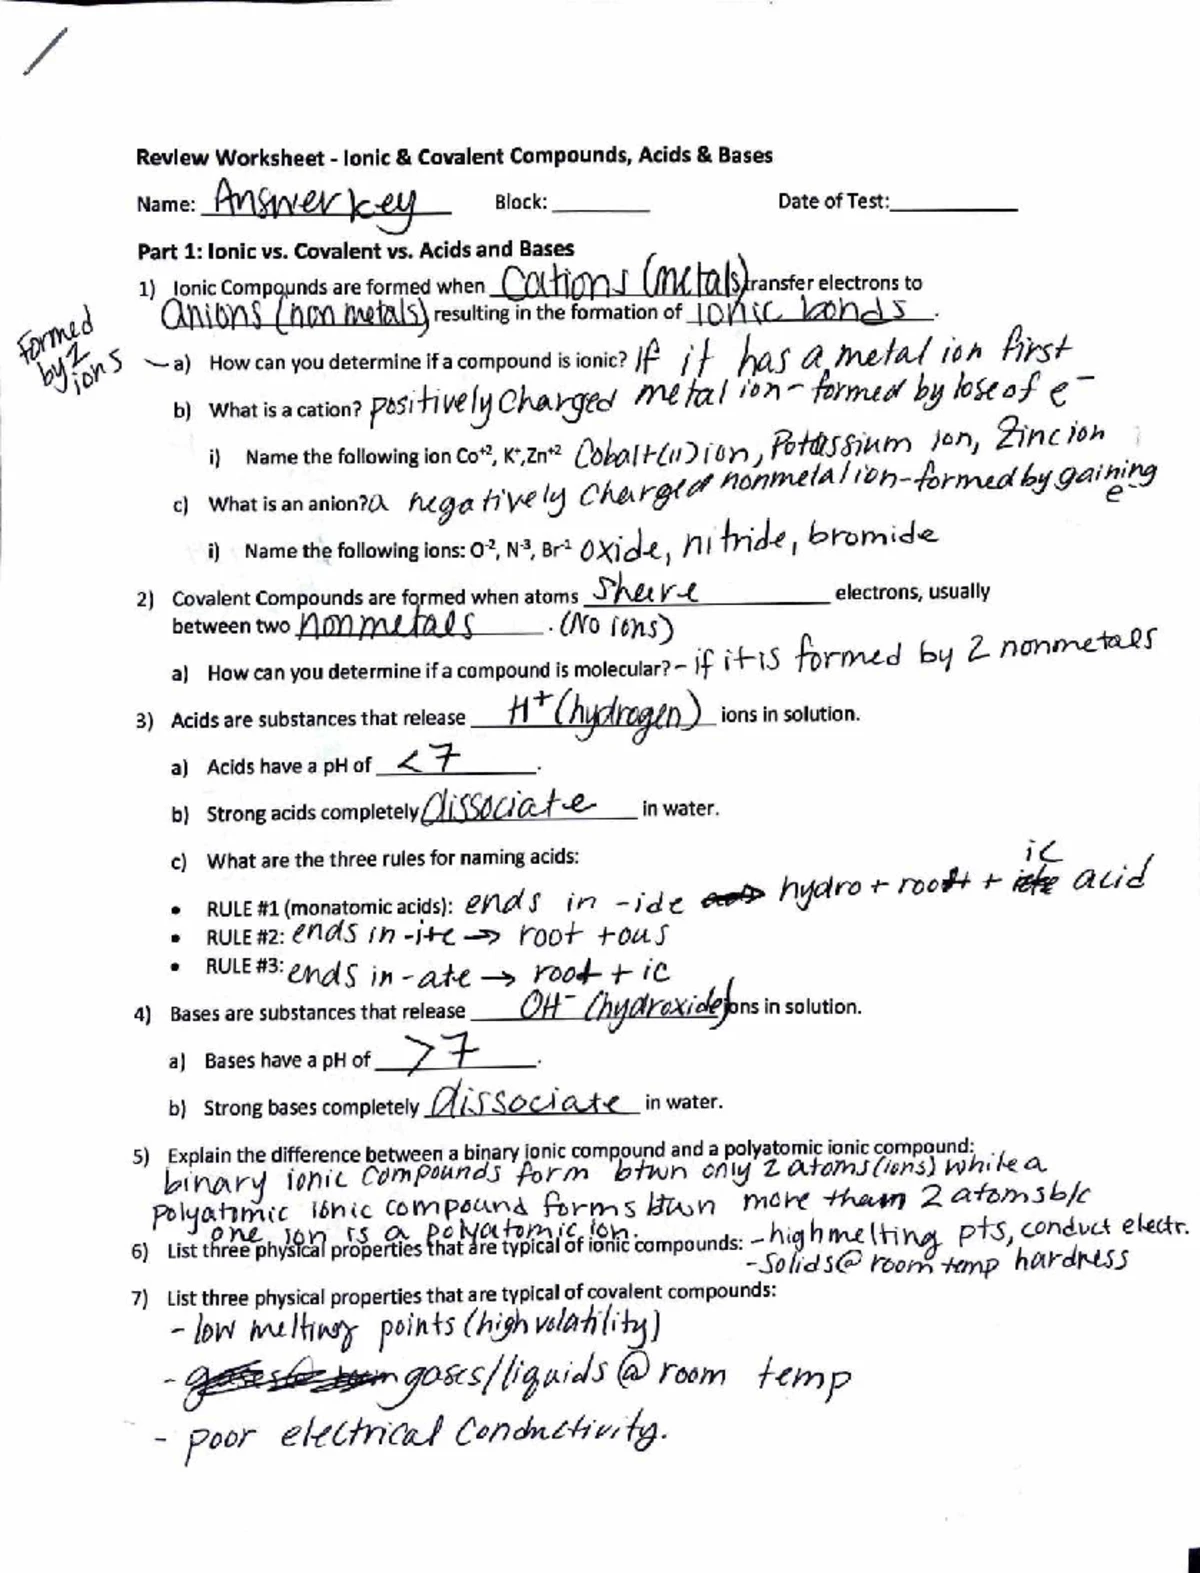 Review Worksheet - Ionic & Covalent Compounds, Acids & Bases
Name: Answer key Block: ________ Date of Test:__________
Part 1: Ionic vs. Covalent vs. Acids and Bases
1) Ionic Compounds are formed when Cations (metals) transfer electrons to
Anions (non metals) resulting in the formation of ionic bonds.
Formed by 2 ions
a) How can you determine if a compound is ionic? If it has a metal ion first
b) What is a cation? positively charged metal ion - formed by lose of e⁻
i) Name the following ion Co⁺², K⁺,Zn⁺² Cobalt(II) ion, Potassium ion, Zinc ion
c) What is an anion? a negatively charged nonmetal ion - formed by gaining e⁻
i) Name the following ions: O⁻², N⁻³, Br⁻¹ oxide, nitride, bromide
2) Covalent Compounds are formed when atoms share electrons, usually
between two nonmetals. (No ions)
a) How can you determine if a compound is molecular? - if it is formed by 2 nonmetals
3) Acids are substances that release H⁺ (hydrogen) ions in solution.
a) Acids have a pH of <7.
b) Strong acids completely dissociate in water.
c) What are the three rules for naming acids:
• RULE #1 (monatomic acids): ends in -ide → hydro + root + ic acid
• RULE #2: ends in -ite → root + ous
• RULE #3: ends in -ate → root + ic
4) Bases are substances that release OH⁻ (hydroxide) ions in solution.
a) Bases have a pH of >7.
b) Strong bases completely dissociate in water.
5) Explain the difference between a binary ionic compound and a polyatomic ionic compound:
binary ionic compounds form btwn only 2 atoms (ions) while a
polyatomic ionic compound forms btwn more than 2 atoms b/c
one ion is a polyatomic ion.
6) List three physical properties that are typical of ionic compounds: - high melting pts, conduct electr.
- Solids @ room temp hardness
7) List three physical properties that are typical of covalent compounds:
- low melting points (high volatility)
- gases/liquids @ room temp
- poor electrical conductivity.